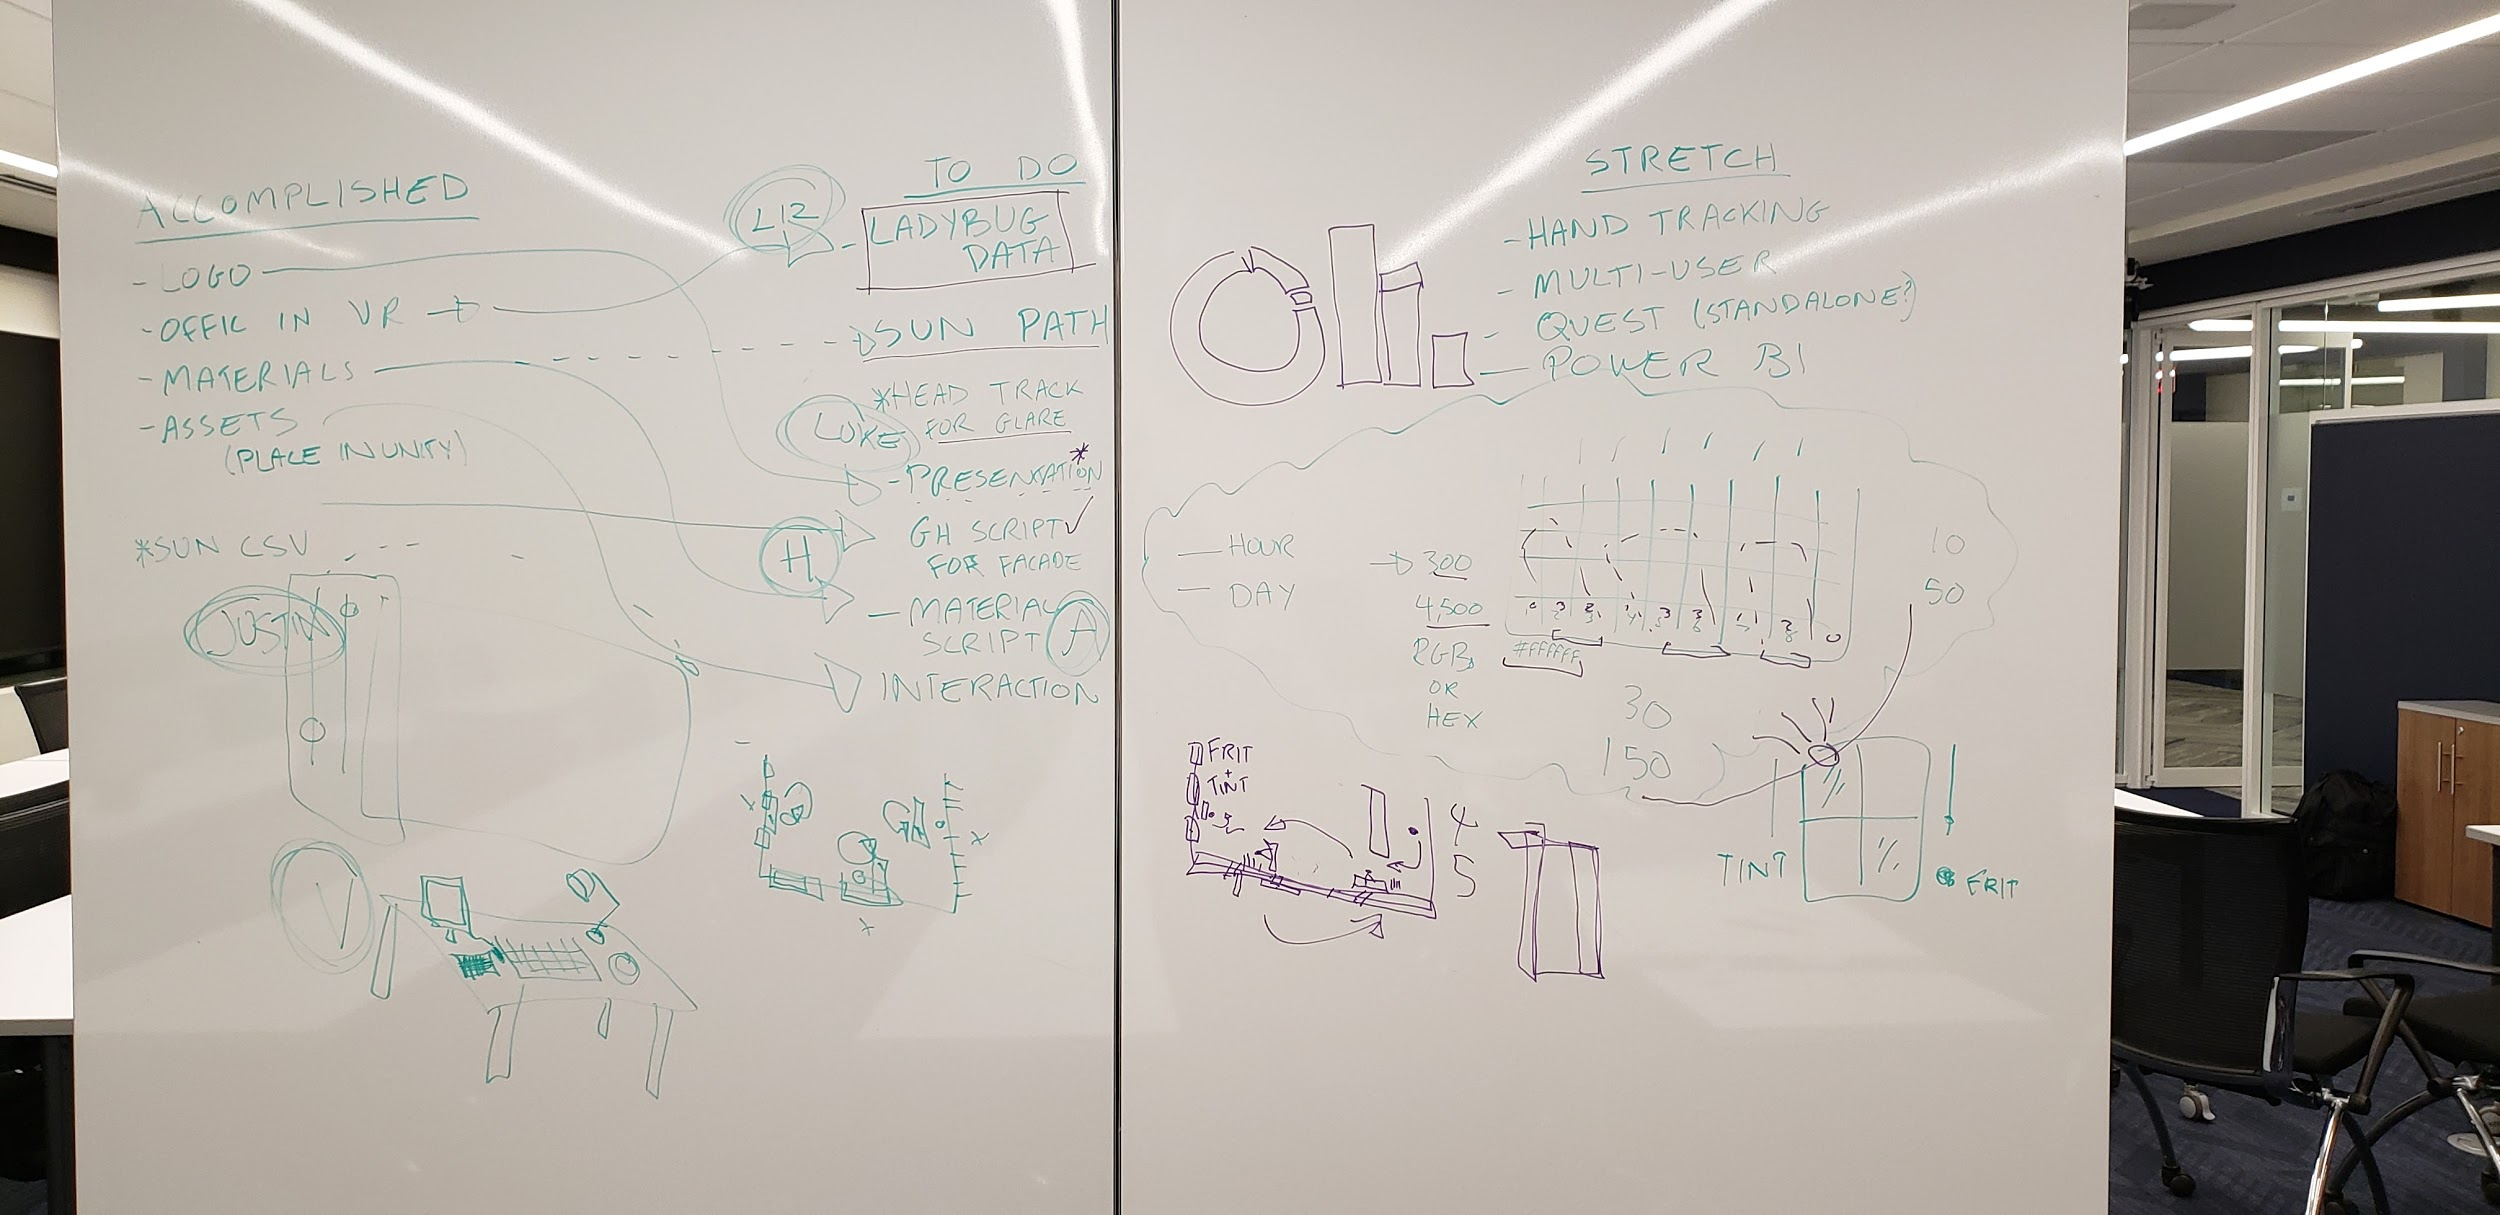 ACCOMPLISHED
- LOGO
- OFFIC IN VR
- MATERIALS
- ASSETS
(PLACE IN UNITY)
*SUN CSV
JUSTIN
V
TO DO
LIZ
- LADYBUG
DATA
SUN PATH
*HEAD TRACK
FOR GLARE
LUKE
- PRESENTATION*
GH SCRIPT✓
FOR FACADE
H
- MATERIAL
SCRIPT
A
INTERACTION
STRETCH
- HAND TRACKING
- MULTI-USER
- QUEST (STANDALONE?)
- POWER BI
- HOUR
- DAY
300
4,500
RGB
OR
HEX
#FFFFFF
10
50
30
150
FRIT
+
TINT
4
5
TINT
FRIT